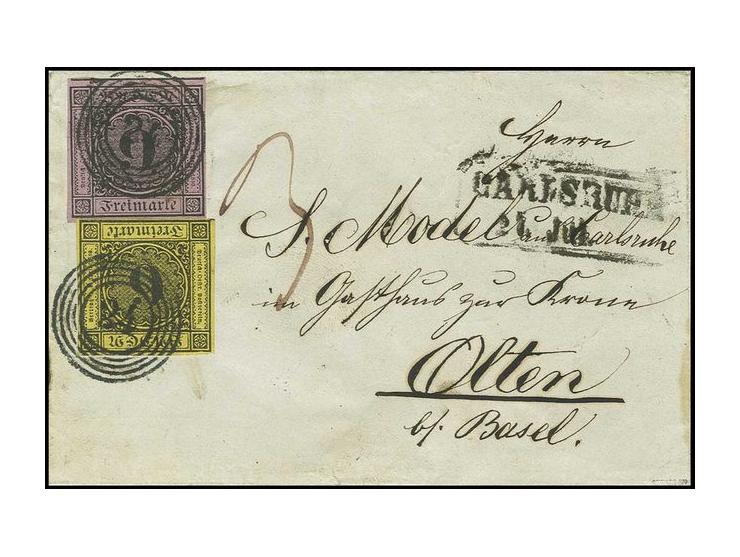 Freimarke
BADEN
Freimarke
9
3
CARLSRUHE
Herrn
S. Model aus Carlsruhe
im Gasthaus zur Krone
Olten
b/. Basel.